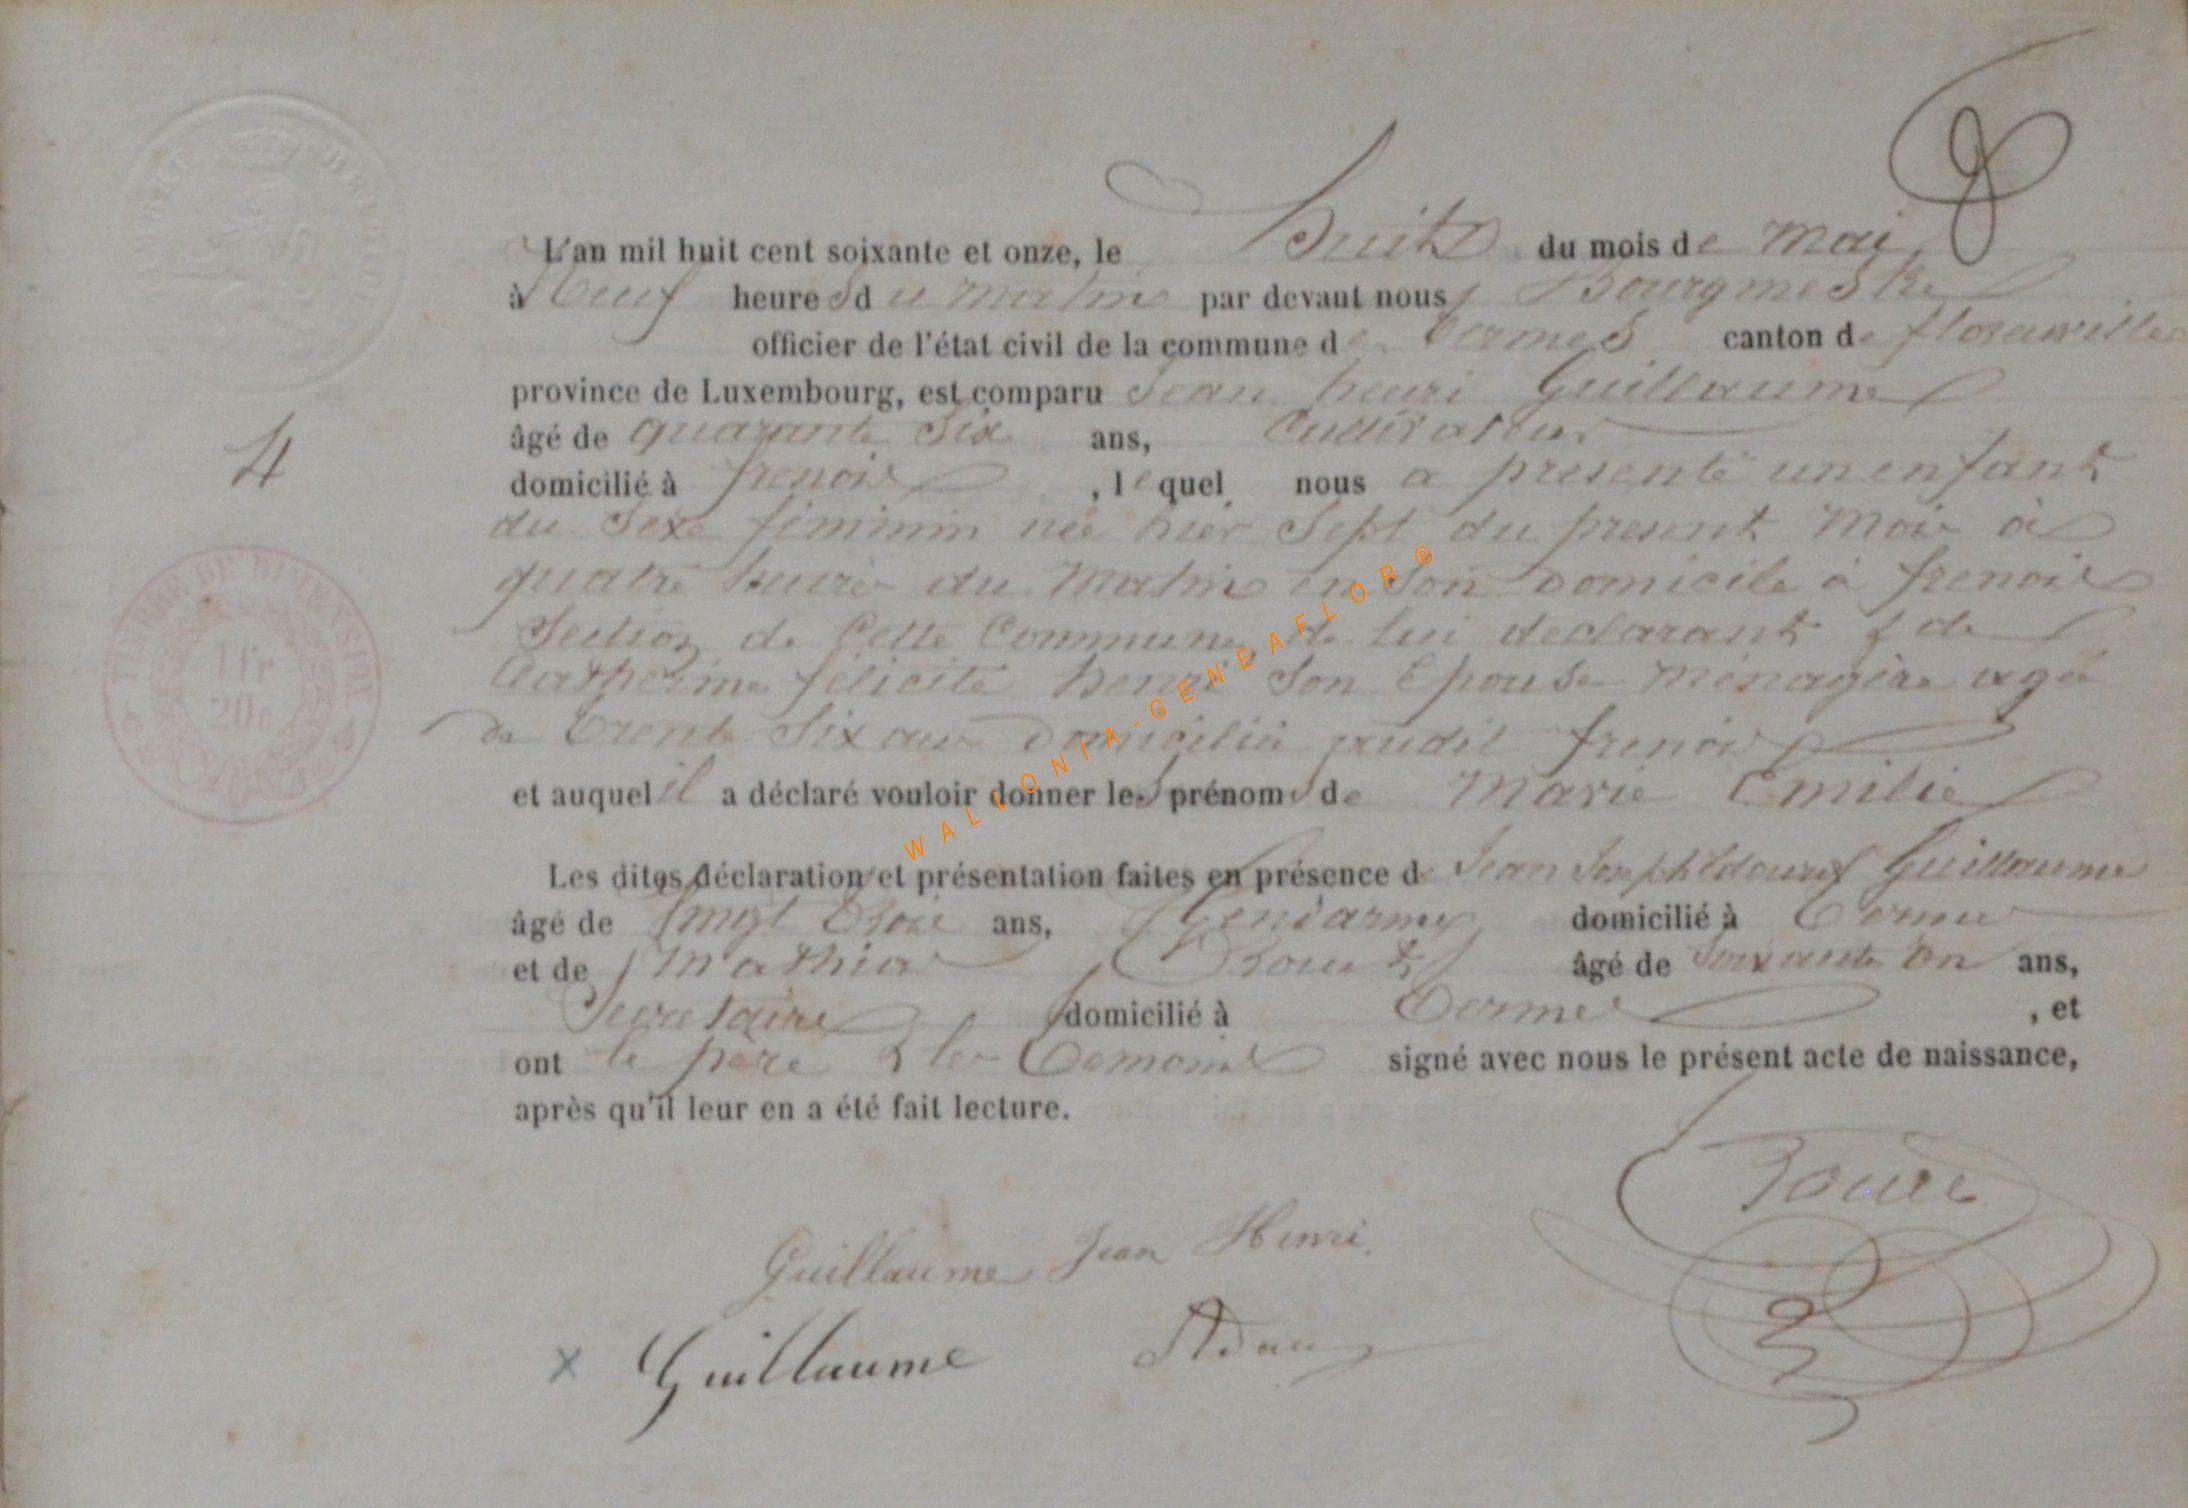 L'an mil huit cent soixante et onze, le huit du mois de mai
à Neuf heures du matin par devant nous Bourgmestre
officier de l'état civil de la commune de termes canton de florenville
province de Luxembourg, est comparu Jean henri Guillaume
âgé de quarante Six ans, Cultivateur
domicilié à frenois, lequel nous a presenté un enfant
du Sexe féminin née hier Sept du present Mois à
quatre heures du Matin en Son Domicile à frenois
Section de Cette Commune de lui declarant & de
Catherine félicité henri Son Epouse Ménagère agée
de trente Six ans Domiciliée audit frenois
et auquel il a déclaré vouloir donner les prénoms de Marie Emilie
Les dites déclaration et présentation faites en présence de Jean Joseph Edouard Guillaume
âgé de Vingt trois ans, Gendarme domicilié à termes
et de Mathias âgé de Soixante un ans,
Secretaire domicilié à termes, et
ont le père & les temoins signé avec nous le présent acte de naissance,
après qu'il leur en a été fait lecture.
4
TIMBRE DE DIMENSION
1 fr
20 c
Guillaume Jean Henri.
x Guillaume
WALLONIA-GENEAFLOR®